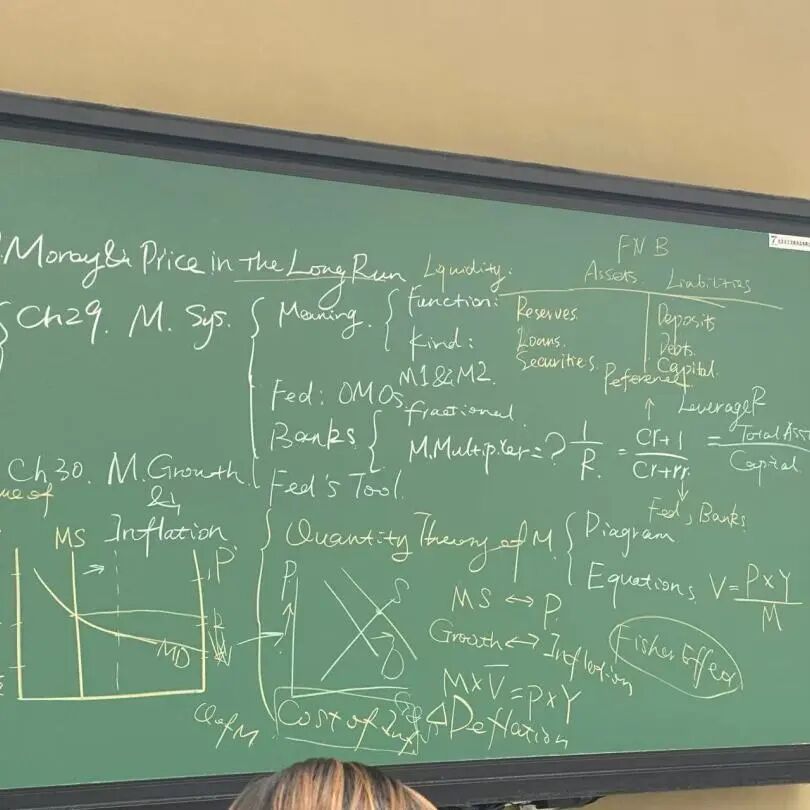 Money & Price in the Long Run
Liquidity:
FNB
Assets Liabilities
Ch29. M. Sys.
Meaning.
Function:
Kind:
M1&M2.
Reserves
Loans.
Securities.
Deposits
Debt.
Capital.
Fed: OMOs
Banks
fractional
M.Multiplier=? 1/R. = Cr+1/Cr+rr.
Leverage R
= Total Ass
Capital
Fed, Banks
Fed's Tool
Ch30. M. Growth
&
Inflation
MS
P
MD
Quantity Theory of M.
Diagram
Equations V= P×Y/M
P
S
D
MS ↔ P.
Growth ↔ Inflation
Fisher Effect
M×V̅ = P×Y
Q of M
Cost of Inf
Deflation